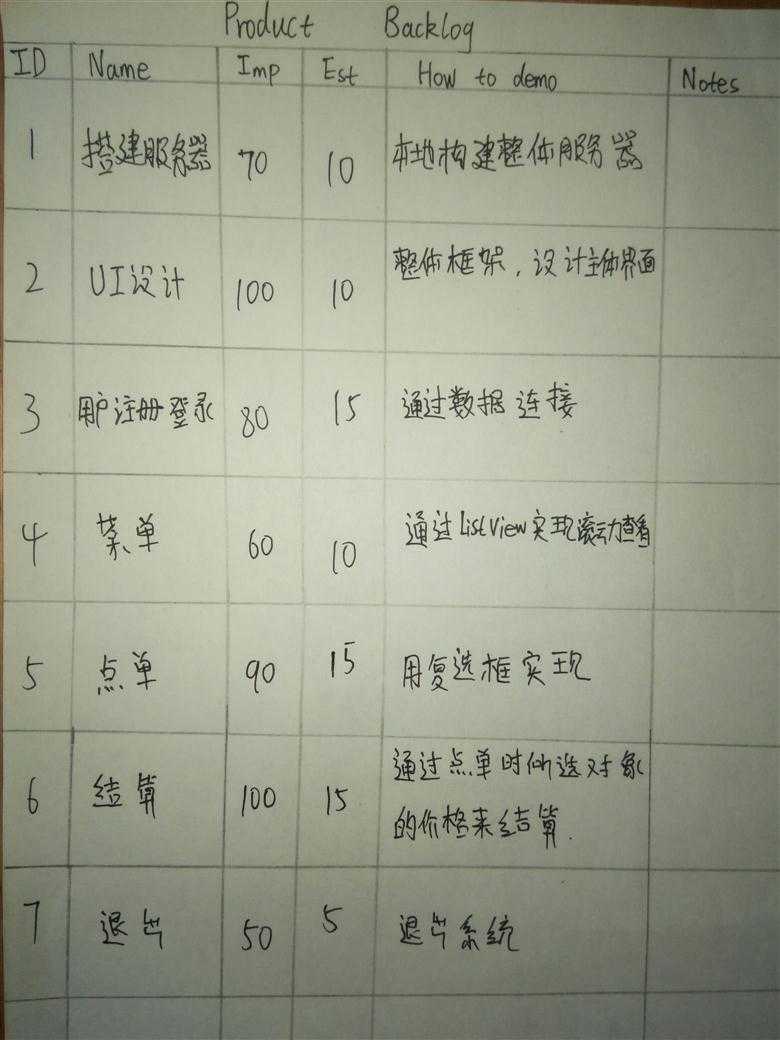 Product Backlog
ID Name Imp Est How to demo Notes
1 搭建服务器 70 10 本地构建整体服务器
2 UI设计 100 10 整体框架，设计主体界面
3 用户注册登录 80 15 通过数据连接
4 菜单 60 10 通过ListView实现滚动查看
5 点单 90 15 用复选框实现
6 结算 100 15 通过点单时所选对象
的价格来结算.
7 退出 50 5 退出系统